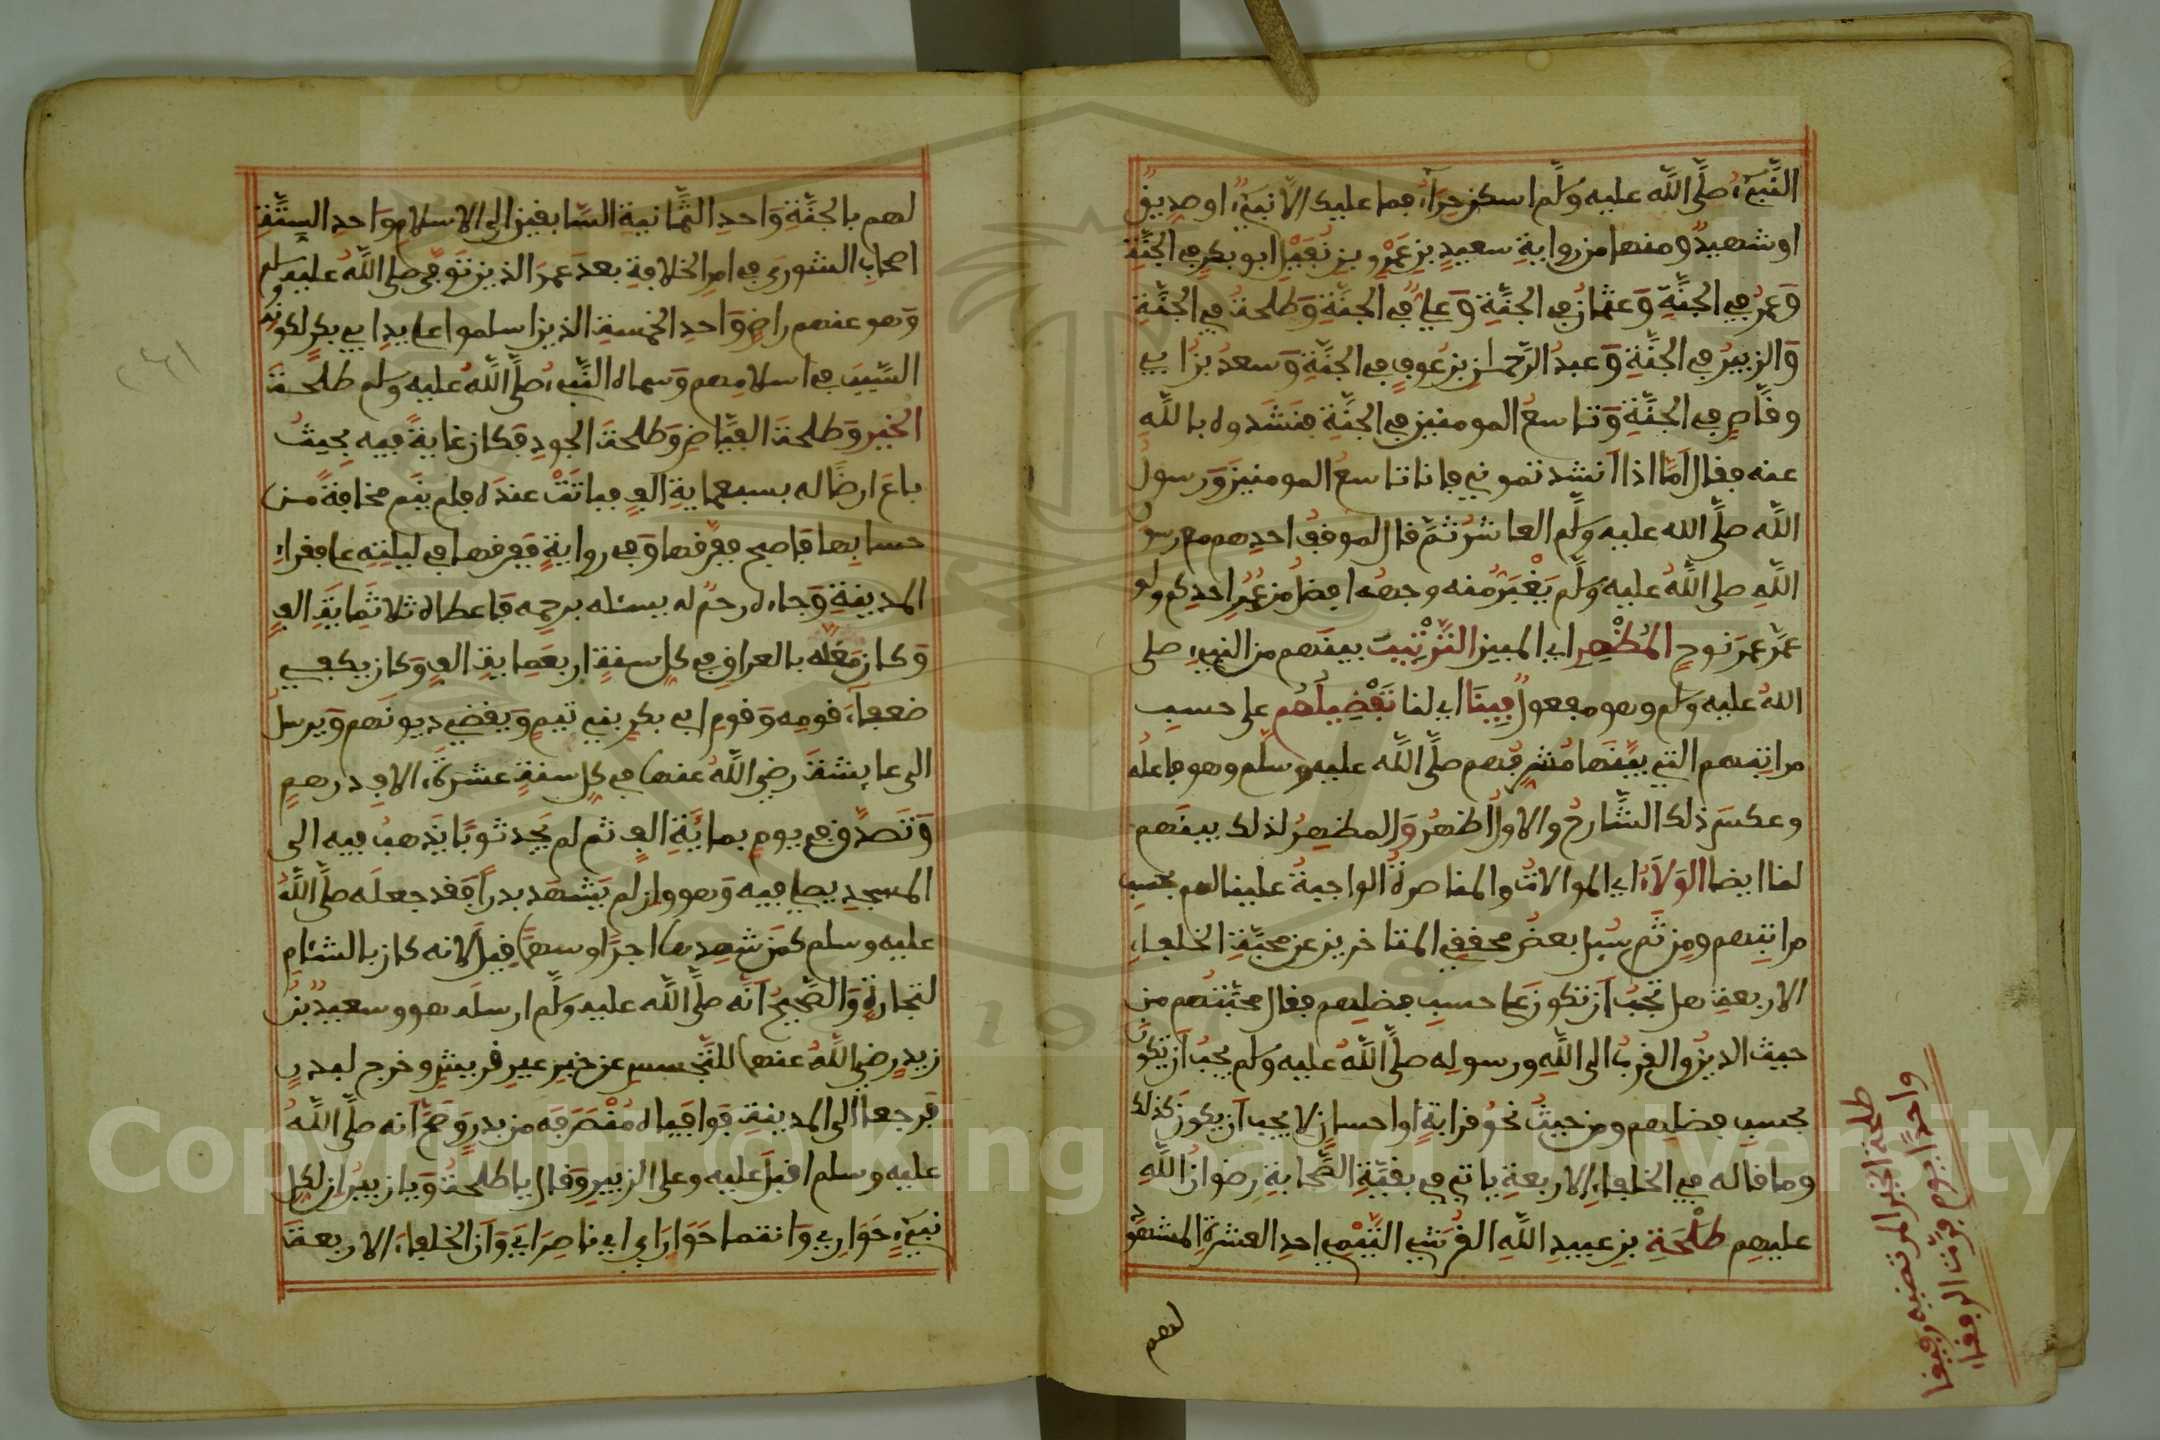 النَّبيُّ صلَّى اللَّه عليه وسلَّم اسكن حِرَاءُ فما عليك الا نبيٌّ او صديقٌ
او شهيدٌ ومنها من رواية سعيدِ بنِ عَمْرِو بنِ نُفَيْلٍ ابو بكرٍ في الجنَّةِ
وَعمرُ في الجنَّةِ وَعثمانُ في الجنَّةِ وَعليٌّ في الجنَّةِ وَطلحةُ في الجنَّةِ
وَالزبيرُ في الجنَّةِ وَعبدُ الرَّحمانِ بنُ عوفٍ في الجنَّةِ وَسعدُ بنُ ابي
وقَّاصٍ في الجنَّةِ وَتاسعُ المومنين في الجنَّةِ فنَشَدوه باللَّهِ
عنه فقال اَمَّا اذا اَنشدتموني فانا تاسعُ المومنينَ وَرسولُ
اللَّه صلَّى الله عليه وسلَّم العاشرُ ثمَّ قال لموقفُ احدِهم مع رسول
اللَّهِ صلى اللَّهُ عليه وسلَّم يَغْبَرُ منه وجهه افضلُ من عُمُرِ احدِكم ولو
عمِّرَ عمرَ نوحٍ المُظْهِرِ اي المبين التَّرْتِيبَ بينَهم من النبي صلى
اللهُ عليه وسلم وهو مفعولُ فِينَا اي لنا تَفْضِيلُهُم على حسبِ
مراتبهم التي بيَّنها مُشرِّفُهم صلَّى اللَّه عليه وسلَّم وهو فاعلُه
وعكسَ ذلك الشَّارحُ والاولُ اظهرُ وَالمظهِرُ لذلك بينهم
لنا ايضا الوَلاَءُ اي الموالاتُ والمناصرةُ الواجبةُ علينا لهم بحسبِ
مراتبِهم ومِن ثَمَّ سُئِل بعضُ محققي المتاخرين عن محبَّةِ الخلفاءِ
الاربعةِ هل تجبُ اَن تكونَ على حسبِ فضلِهم فقال محبَّتُهم من
حيثُ الدينُ والقربُ الى اللَّهِ ورسولِه صلَّى اللَّهُ عليه وسلم يجبُ اَن تكونَ
بحسبِ فضلِهم ومن حيثُ نحوُ قرابةٍ او احسانٍ لا يجب اَن يكونَ كذلك
وما قاله في الخلفاءِ الاربعةِ ياتي في بقيَّةِ الصَّحابةِ رضوانُ اللَّهِ
عليهِم طَلْحَةِ بنِ عبيدِ اللَّهِ القُرَشي التَّيْمي احدِ العشرةِ المشهودِ
لهم
طلحة الخير المرتضيه رفيقا
واحدًا يوم فرَّت الرفقاء
لهم بالجنَّةِ وَاحدِ الثَّمانيةِ السَّابقين الى الاسلامِ وَاحدِ الستَّةِ
اصحابِ الشورى في امرِ الخلافةِ بعدَ عمرَ الذين توفّي صلى اللَّهُ عليه وسلم
وَهو عنهم راضٍ وَاحدِ الخمسةِ الذين اسلموا على يدِ ابي بكرٍ لكونه
السَّببَ في اسلامِهم وَسماه النَّبيُّ صلَّى اللَّهُ عليه وسلم طلحةَ
الخيرِ وَطلحةَ الفيَّاضِ وَطلحةَ الجودِ فكان غايةً فيه بحيثُ
باعَ ارضًا له بسبعماية الفٍ فباتَتْ عندَه فلم ينَم مخافةً من
حسابِها فاصبح ففرَّقها وَفي روايةٍ ففرقها في ليلتِهِ على فقراءِ
المدينةِ وَجاءه رحمٌ له يسئله برحِمِه فاعطاه ثلاثَمايةِ الفٍ
وَكان مَغله بالعراقِ في كلِ سنةٍ اربعَمايةِ الفٍ وَكان يكفي
ضعفاءَ قومِه وَقومِ ابي بكرٍ بني تيمٍ وَيقضي ديونَهم وَيرسلُ
الى عايشةَ رضي اللَّهُ عنها في كلِ سنةٍ عشرةَ الافِ درهمٍ
وَتصدَّق في يومٍ بمائةِ الفٍ ثم لم يَجد ثوبًا يذهبُ فيه الى
المسجدِ يصلي فيه وَهو وان لم يشهَد بدرًا فقد جعلَه صلَّى اللَّهُ
عليه وسلم كمَن شهِدها اجرًا وسهمًا قيل لانه كان بالشامِ
لتجارةٍ وَالصَّحيحُ اَنَّه صلَّى اللَّه عليه وسلَّم ارسلَه هو وسعيدُ بنُ
زيدٍ رضي اللَّهُ عنهما للتَّجسسِ عن خبرِ عيرِ قريشٍ وخرج لبدرٍ
فرجعا الى المدينةِ فوافياه مُنْصَرَفَه من بدرٍ وَصحَّ اَنه صلَّى اللَّهُ
عليه وسلم اقبلَ عليه وعلى الزبيرِ وَقال يا طلحةُ وَيا زبيرُ اِن لكلِ
نبيٍّ حَوَاري وَانتما حَوَارَايَ اي ناصِرَايَ وَاَن الخلفاءَ الاربعةَ